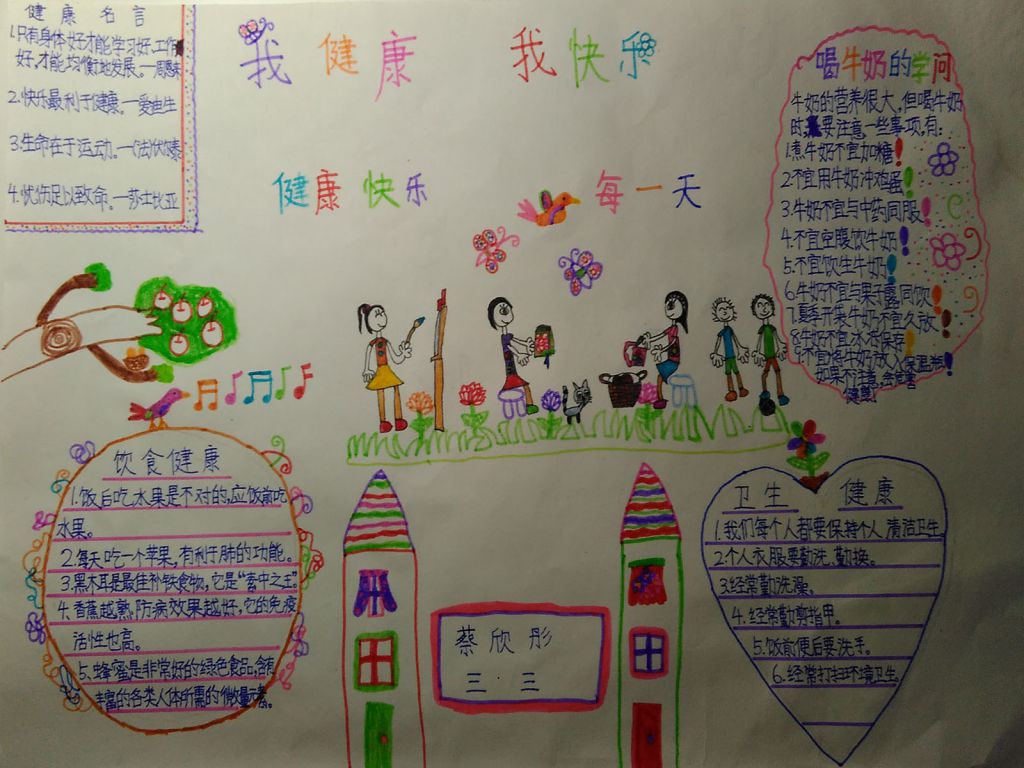 健康名言
1.只有身体好才能学习好、工作
好,才能均衡地发展。—周
2.快乐最利于健康。—爱由生
3.生命在于运动。—(法)伏尔泰
4.忧伤足以致命。—莎士比亚
我健康 我快乐
健康快乐 每一天
喝牛奶的学问
牛奶的营养很大,但喝牛奶
时要注意一些事项,有:
1.煮牛奶不宜加糖!
2.不宜用牛奶冲鸡蛋!
3.牛奶不宜与中药同服!
4.不宜空腹饮牛奶!
5.不宜饮生牛奶!
6.牛奶不宜与果子露同饮!
7.夏季开袋牛奶不宜久放!
8.牛奶不宜冰冻保存!
9.不宜将牛奶放入保温瓶!
如果不注意,会危害
健康!
饮食健康
1.饭后吃水果是不对的,应饭前吃
水果。
2.每天吃一个苹果,有利于肺的功能。
3.黑木耳是最佳补铁食物,它是“素中之王”
4.香蕉越熟,防病效果越好,它的免疫
活性也高。
5.蜂蜜是非常好的绿色食品,含有
丰富的各类人体所需的微量元素。
蔡欣彤
三.三
卫生 健康
1.我们每个人都要保持个人清洁卫生
2.个人衣服要勤洗、勤换。
3.经常勤洗澡。
4.经常勤剪指甲。
5.饭前便后要洗手。
6.经常打扫环境卫生。